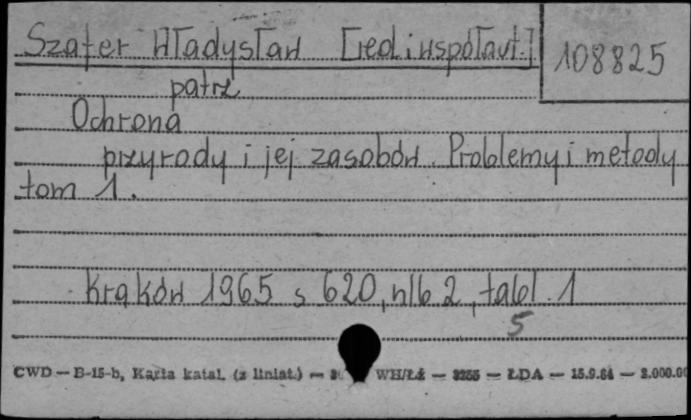 Szafer Władysław [red.i współaut.]
108825
patrz
Ochrona
przyrody i jej zasobów. Problemy i metody
tom 1.
Kraków 1965 s 620, nlb 2, tabl. 1
5
CWD — B-15-b, Karta katal. (z liniat.) — WH/Łź — 3255 — ŁDA — 15.9.64 — 2.000.00